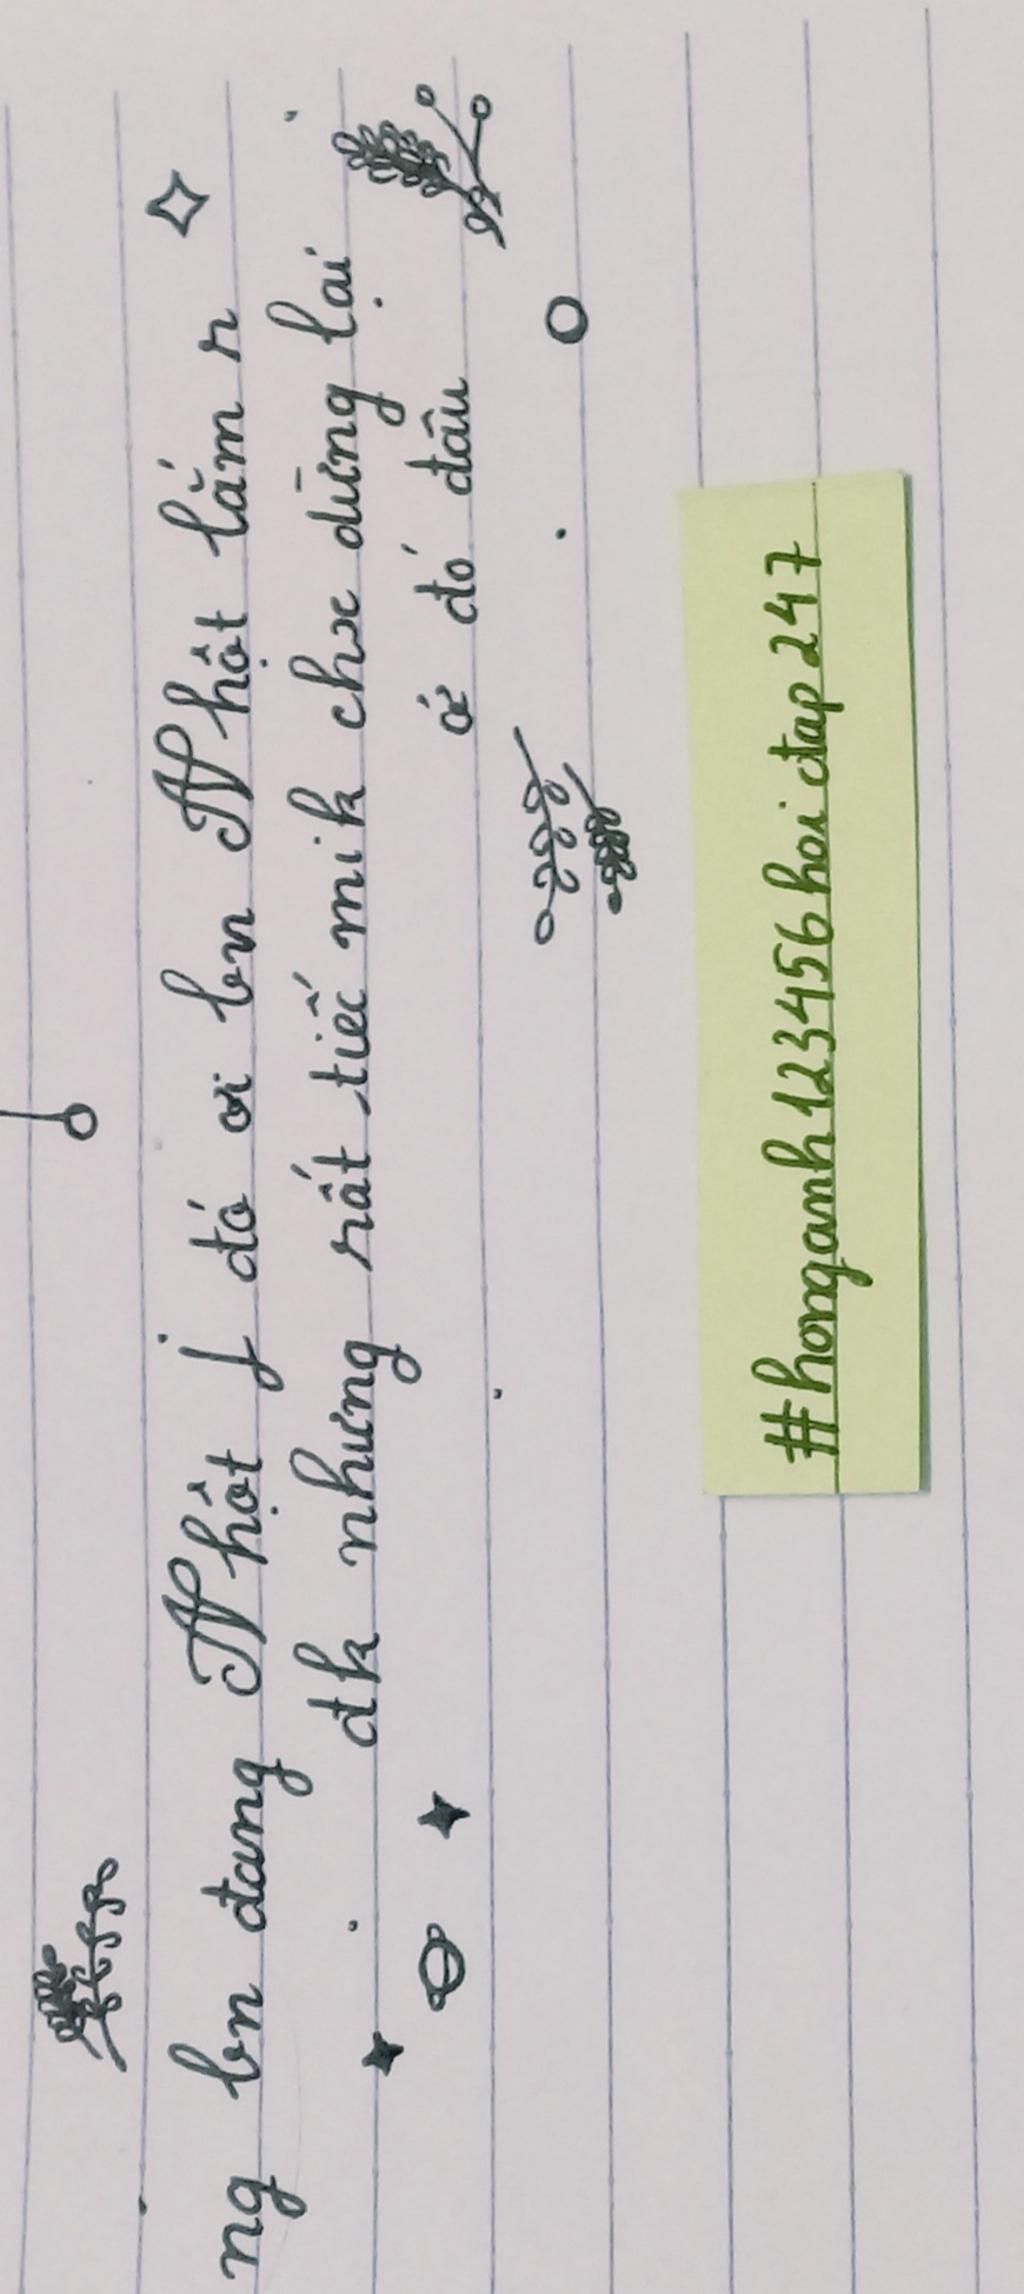 ng bn đang Nhột j đó ơi bn Nhột lắm r
đk nhưng rất tiếc mik chx dừng lại
ở đó đâu
#honganh123456hoidap247